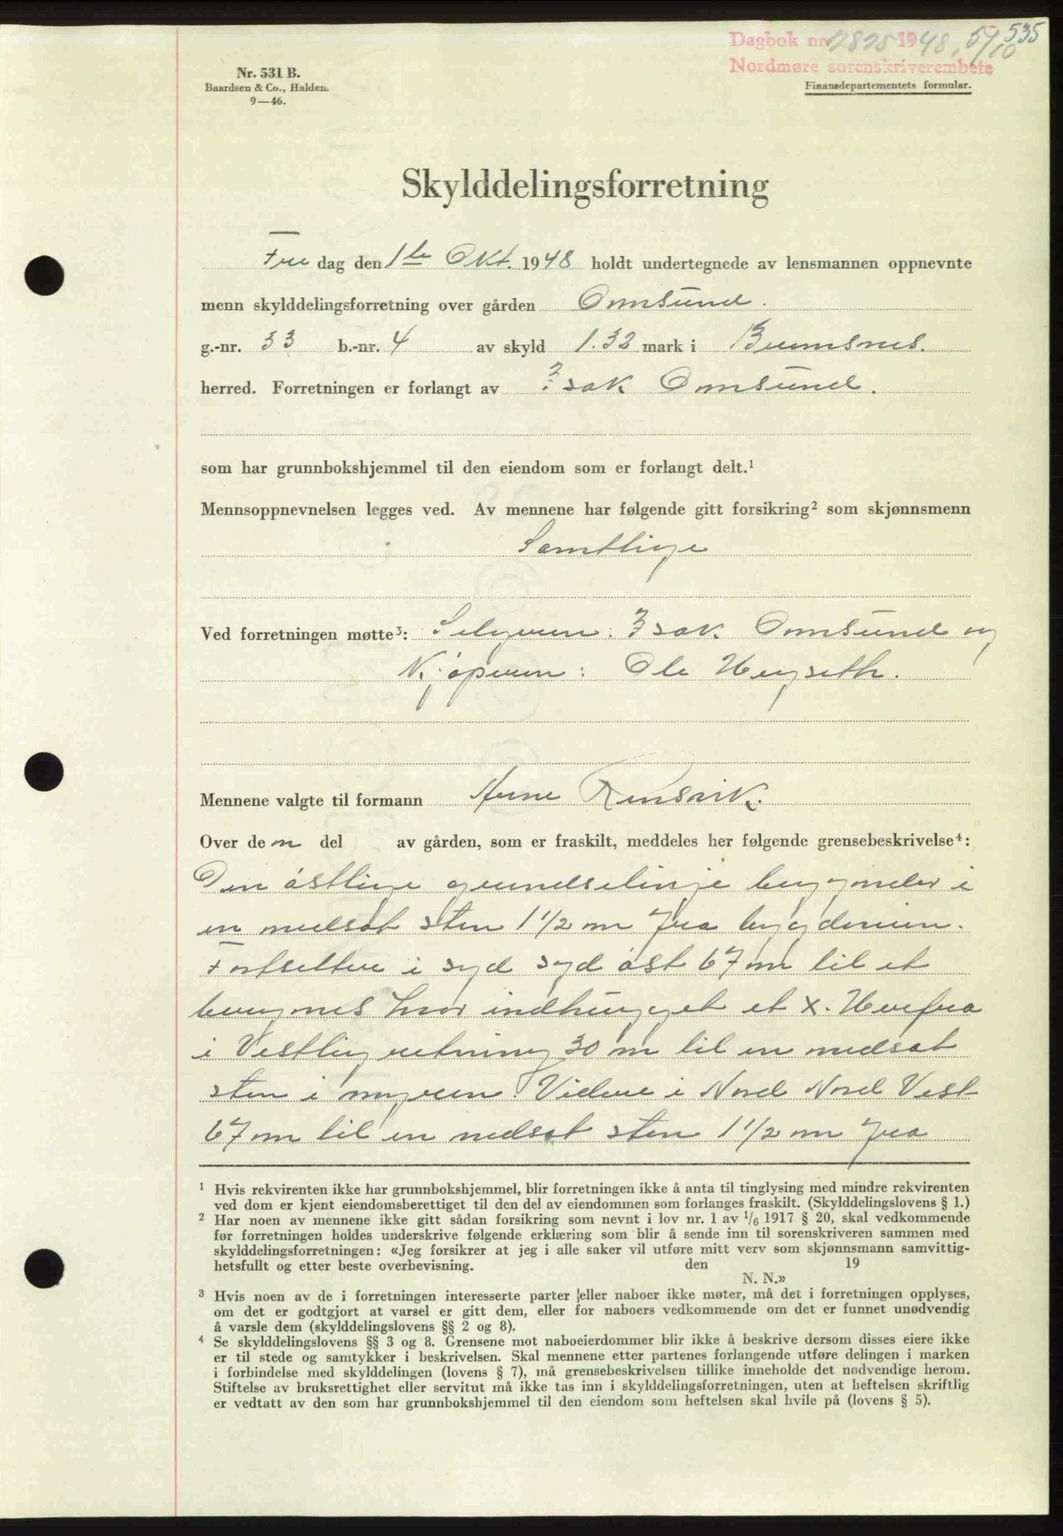 535
Dagbok nr. 2825 1948. 5/10
Nordmøre sorenskriverembete
Nr. 531 B.
Baardsen & Co., Halden.
9—46.
Finansdepartementets formular.
Skylddelingsforretning
Fre dag den 1ste Okt. 1948 holdt undertegnede av lensmannen oppnevnte
menn skylddelingsforretning over gården Omsund.
g.-nr. 33 b.-nr. 4 av skyld 1.32 mark i Bremsnes.
herred. Forretningen er forlangt av Isak Omsund.
som har grunnbokshjemmel til den eiendom som er forlangt delt.¹
Mennsoppnevnelsen legges ved. Av mennene har følgende gitt forsikring² som skjønnsmenn
Samtlige
Ved forretningen møtte³: Selgeren: Isak Omsund og
Kjøperen: Ole Høyseth.
Mennene valgte til formann Arne Rensvik.
Over den del av gården, som er fraskilt, meddeles her følgende grensebeskrivelse⁴:
Den østlige grendselinje begynder i
en nedsat sten 1 1/2 m fra bygdeveien.
Fortsetter i syd syd øst 67 m til et
bergnes hvor indhugget et x. Herfra
i Vestlig retning 30 m til en nedsat
sten i myren. Videre i Nord Nord Vest
67 m til en nedsat sten 1 1/2 m fra
¹ Hvis rekvirenten ikke har grunnbokshjemmel, blir forretningen ikke å anta til tinglysing med mindre rekvirenten
ved dom er kjent eiendomsberettiget til den del av eiendommen som forlanges fraskilt. (Skylddelingslovens § 1.)
² Har noen av mennene ikke gitt sådan forsikring som nevnt i lov nr. 1 av 1/6 1917 § 20, skal vedkommende
før forretningen holdes underskrive følgende erklæring som blir å sende inn til sorenskriveren sammen med
skylddelingsforretningen: «Jeg forsikrer at jeg i alle saker vil utføre mitt verv som skjønnsmann samvittig-
hetsfullt og etter beste overbevisning. den 19
N. N.»
³ Hvis noen av de i forretningen interesserte parter eller naboer ikke møter, må det i forretningen opplyses,
om det er godtgjort at varsel er gitt dem, eller for naboers vedkommende om det er funnet unødvendig
å varsle dem (skylddelingslovens §§ 2 og 8).
⁴ Se skylddelingslovens §§ 3 og 8. Grensene mot naboeierdommer blir ikke å beskrive dersom disses eiere ikke
er til stede og samtykker i beskrivelsen. Skal mennene etter partenes forlangende utføre delingen i marken
i forbindelse med skylddelingen (lovens § 7), må grensebeskrivelsen tillike inneholde det nødvendige herom.
Stiftelse av bruksrettighet eller servitut må ikke tas inn i skylddelingsforretningen, uten at heftelsen skriftlig
er vedtatt av den som har grunnbokshjemmel til den eiendom som heftelsen skal hvile på (lovens § 5).